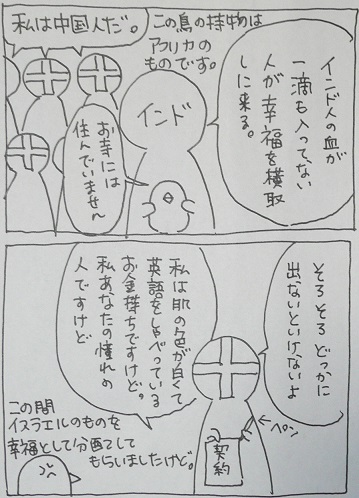 インド人の血が
一滴も入ってない
人が幸福を横取
しに来る。
この鳥の持物は
アフリカの
ものです。
私は中国人だ。
インド
お寺には
住んでいません
そろそろどっかに
出ないといけないよ
ペン
契約
私は肌の色が白くて
英語をしゃべっている
お金持ちですけど。
私あなたの憧れの
人ですけど
この間
イスラエルのものを
幸福として分配して
もらいましたけど。